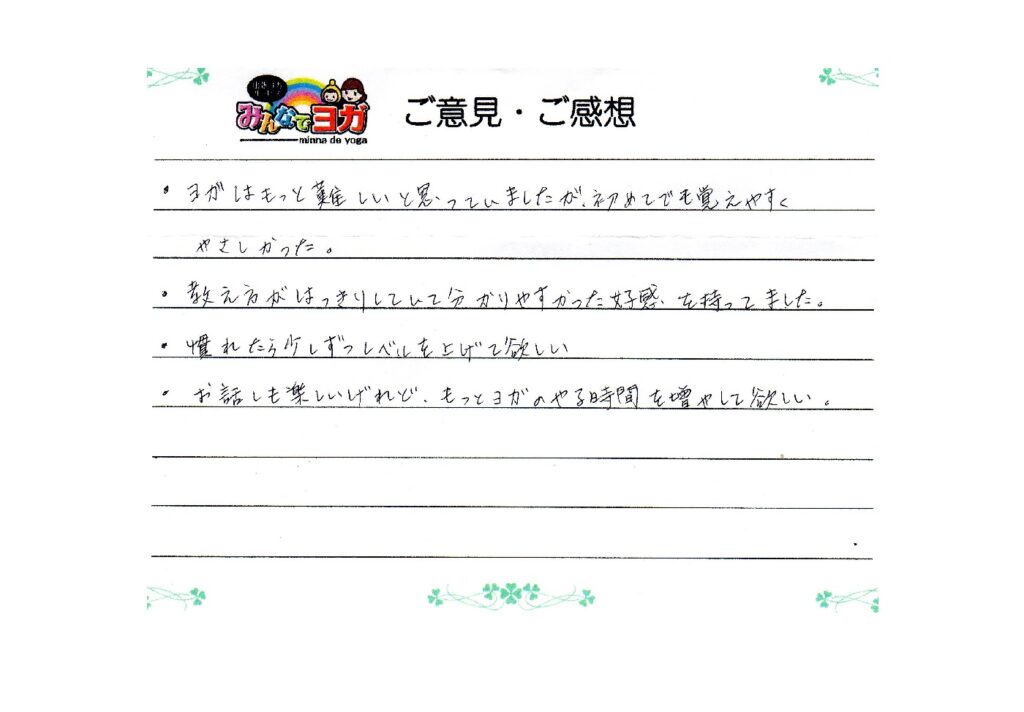 みんなでヨガ
minna de yoga
ご意見・ご感想
・ヨガはもっと難しいと思っていましたが、初めてでも覚えやすく
やさしかった。
・教え方がはっきりしていて分かりやすかった好感、を持ってました。
・慣れたら少しずつレベルを上げて欲しい
・お話しも楽しいけれど、もっとヨガのやる時間を増やして欲しい。